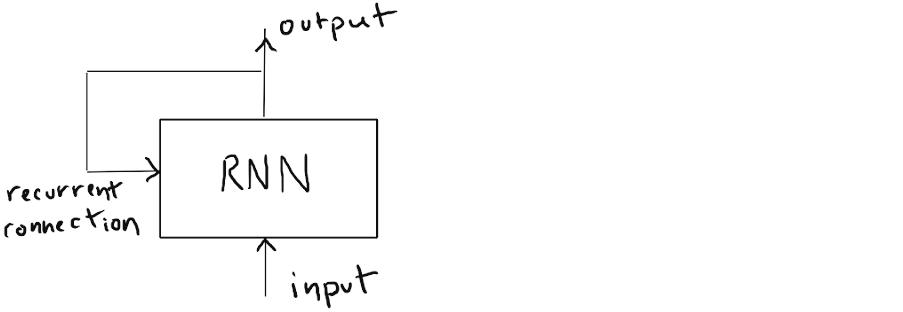 output
RNN
recurrent
connection
input